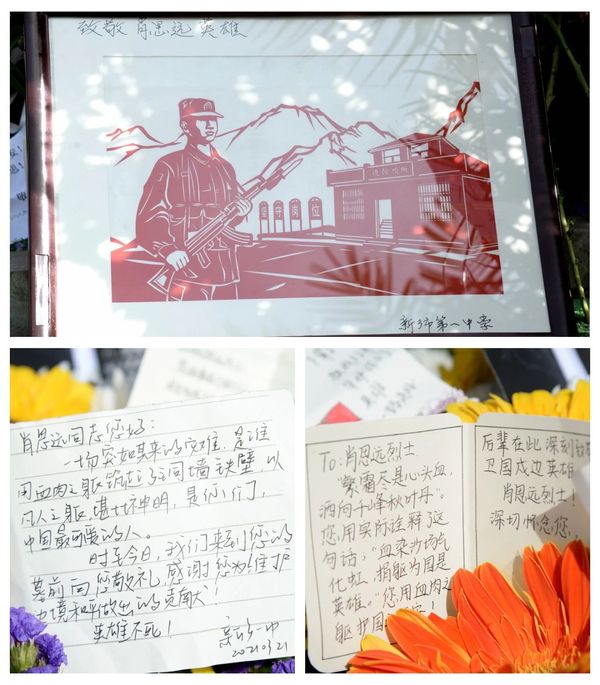 致敬 肖思远 英雄
坚守岗位
新乡市第一中学
肖思远同志您好：
一场突如其来的灾难，是谁
用血肉之躯筑起了铜墙铁壁，以
凡人之躯堪比神明，是你们，
中国最可爱的人。
时至今日，我们来到您的
墓前向您敬礼，感谢您为维护
边境和平做出的贡献！
英雄不死！
2021.03.21
To:肖思远烈士
“繁霜尽是心头血，
洒向千峰秋叶丹”。
您用实行诠释了这
句话：“血染沙场气
化虹，捐躯为国是
英雄。”您用血肉之
躯护国
后辈在此深刻致敬
卫国戍边英雄
肖思远烈士！
深切怀念您。